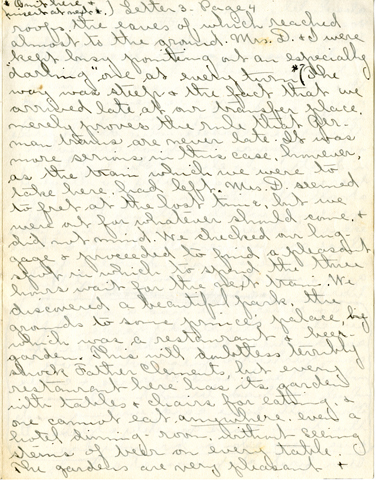 * Omit here &
insert at next *.) Letter 3. Page 4
roofs, the eaves of which reached
almost to the ground. Mrs. D. & I were
kept busy pointing out an especially
"darling" one at every turn. * (The
way was steep & the fact that we
arrived late at our transfer place
merely proves the rule that Ger-
man trains are never late. It was
more serious in this case, however,
as the train which we were to
take here had left. Mrs. D. seemed
to fret at the lost time, but we
were out for whatever should come, &
did not mind. We checked our lug-
gage & proceeded to find a pleasant
spot in which to spend the three
hours wait for the next train. We
discovered a beautiful park, the
grounds to some prince's palace, by
which was a restaurant & beer
garden. This will doubtless terribly
shock Father Clement, but every
restaurant here has its garden
with tables & chairs for eating, &
one cannot eat anywhere, even a
hotel dining-room, without seeing
steins of beer on every table.
The gardens are very pleasant &